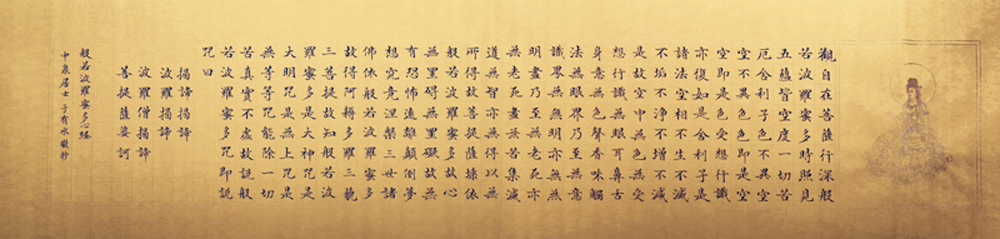 觀自在菩薩行深般
若波羅蜜多時照見
五蘊皆空度一切苦
厄舍利子色不異空
空不異色色即是空
空即是色受想行識
亦復如是舍利子是
諸法空相不生不滅
不垢不淨不增不減
是故空中無色無受
想行識無眼耳鼻舌
身意無色聲香味觸
法無眼界乃至無意
識界無無明亦無無
明盡乃至無老死亦
無老死盡無苦集滅
道無智亦無得以無
所得故菩提薩埵依
般若波羅蜜多故心
無罣礙無罣礙故無
有恐怖遠離顛倒夢
想究竟涅槃三世諸
佛依般若波羅蜜多
故得阿耨多羅三藐
三菩提故知般若波
羅蜜多是大神咒是
大明咒是無上咒是
無等等咒能除一切
苦真實不虛故說般
若波羅蜜多咒即說
咒曰
揭諦揭諦
波羅揭諦
波羅僧揭諦
菩提薩婆訶
般若波羅蜜多心經
居士